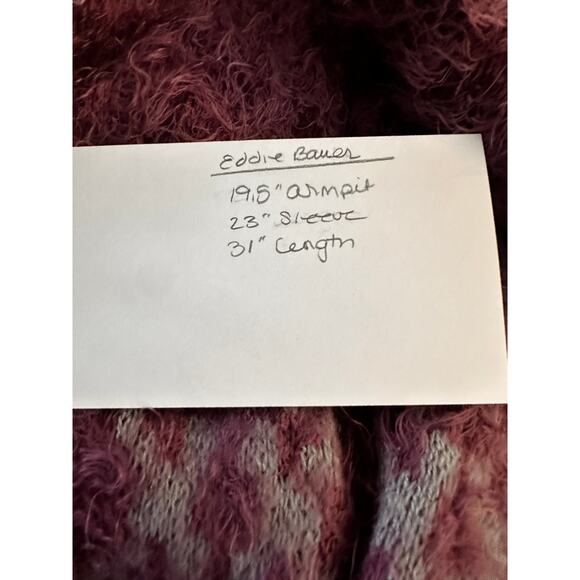 Eddie Bauer
19.5" armpit
23" Sleeve
31" Length